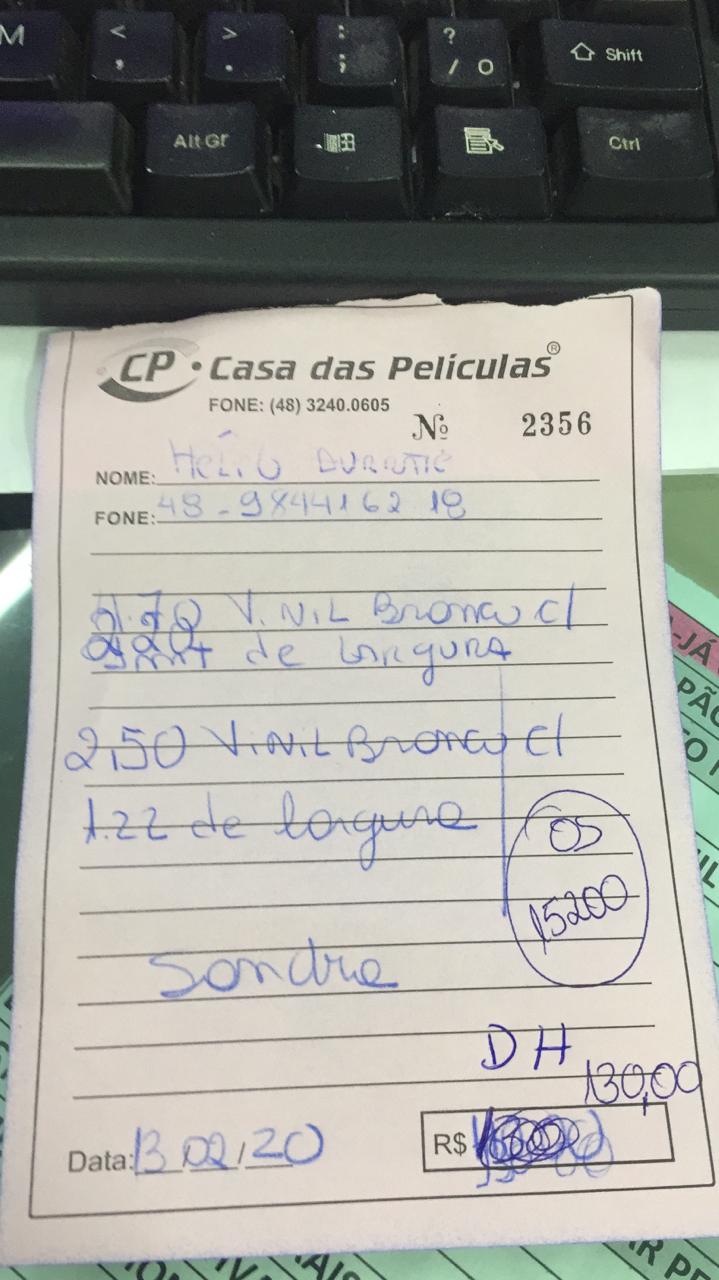 M < , > . : ; ? / O Shift
Alt Gr Ctrl
CP • Casa das Películas®
FONE: (48) 3240.0605
Nº 2356
NOME: HéLiO
FONE: 48-984416218
V.NiL Branco c/
de LARGURA
2,50 ViNiL Branco c/
1.22 de largura
OS
15200
Sandra
DH
130,00
Data: 13/02/20 R$